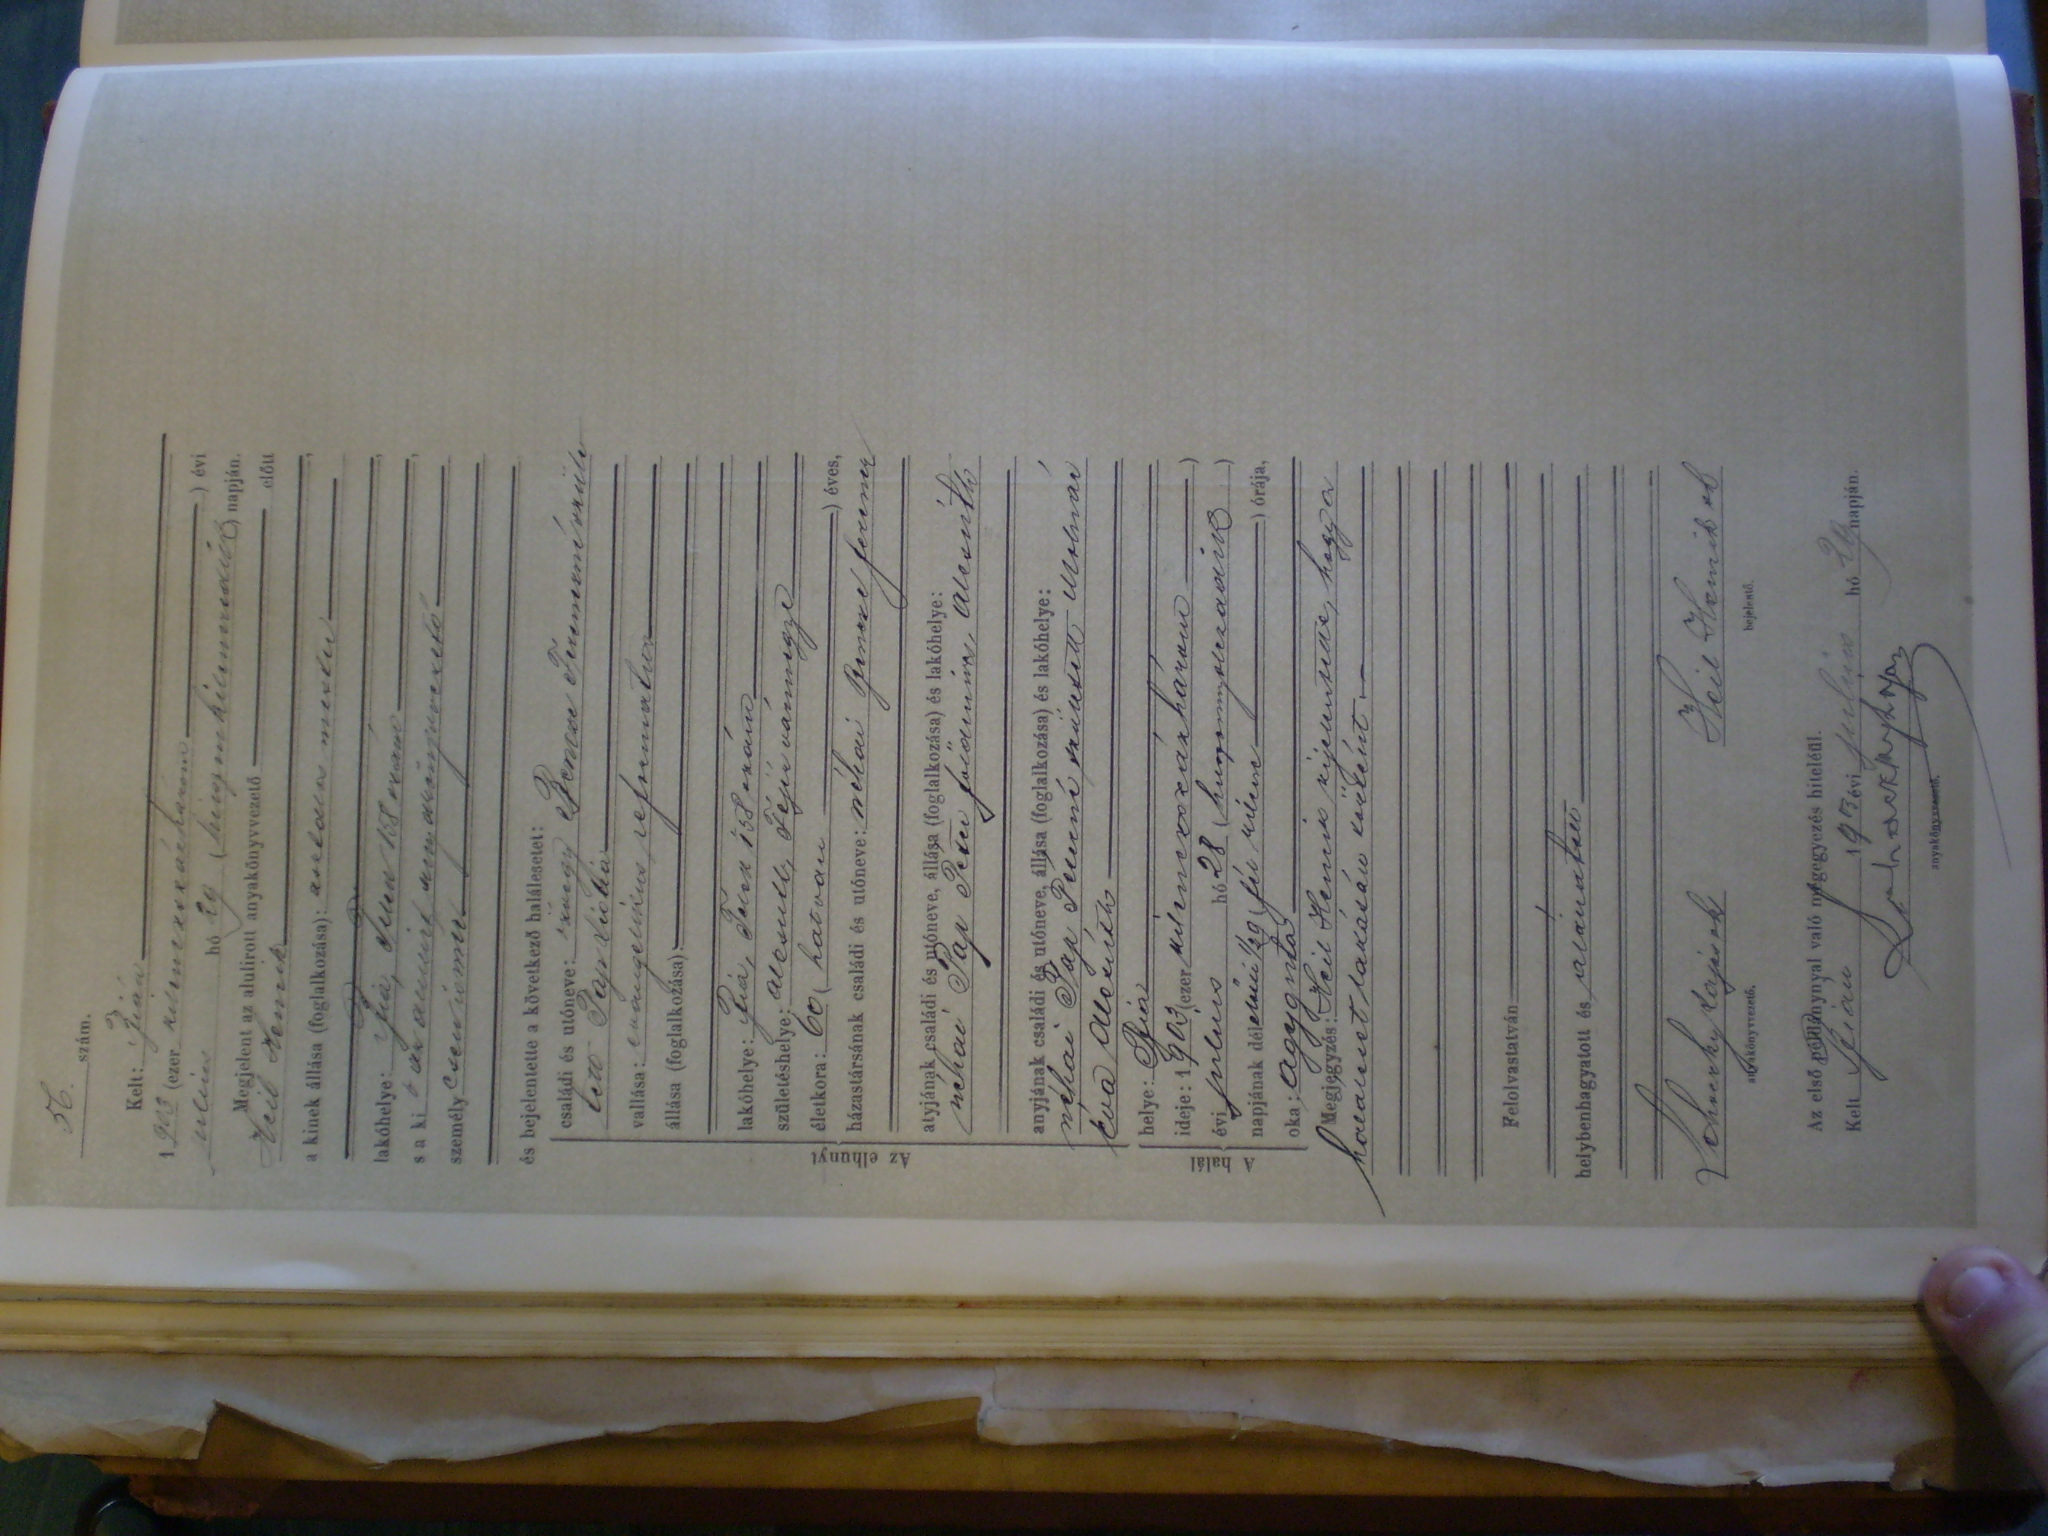 56. szám.
Kelt: Bián
1903 (ezer kilenczszázhárom) évi
julius hó 29 (huszonkilenczedik) napján.
Megjelent az alulirott anyakönyvvezető előtt
Heil Henrik
a kinek állása (foglalkozása): mester,
lakóhelye: Bia, 158 szám,
s a ki az anyakönyvvezető,
személyesen ismer
és bejelentette a következő halálesetet:
Az elhunyt
családi és utóneve: özvegy Ferenczné szüle-
tett Pap Lidia
vallása: evangelikus reformatus
állása (foglalkozása):
lakóhelye: Bia, 158 szám
születéshelye: Alcsuth, Fejérvármegye
életkora: 60 (hatvan) éves,
házastársának családi és utóneve: néhai Ferencz
atyjának családi és utóneve, állása (foglalkozása) és lakóhelye:
néhai Pap Péter földmíves, Alcsuth
anyjának családi és utóneve, állása (foglalkozása) és lakóhelye:
néhai Pap Péterné született Molnár
Éva Alcsuth
A halál
helye: Bia
ideje: 1903 (ezer kilenczszázhárom)
évi julius hó 28 (huszonnyolczadik)
napjának délelőtti ½9 (fél kilencz) órája,
oka: agyguta
Megjegyzés: Heil Henrik kijelentette, hogy a
halálesetről tudomása van.
Felolvastatván
helybenhagyatott és aláiratott
Lajos sk Heil Henrik sk
anyakönyvvezető. bejelentő.
Az első példánynyal való megegyezés hiteléül.
Kelt Bián 1903 évi julius hó 29 napján.
anyakönyvvezető.